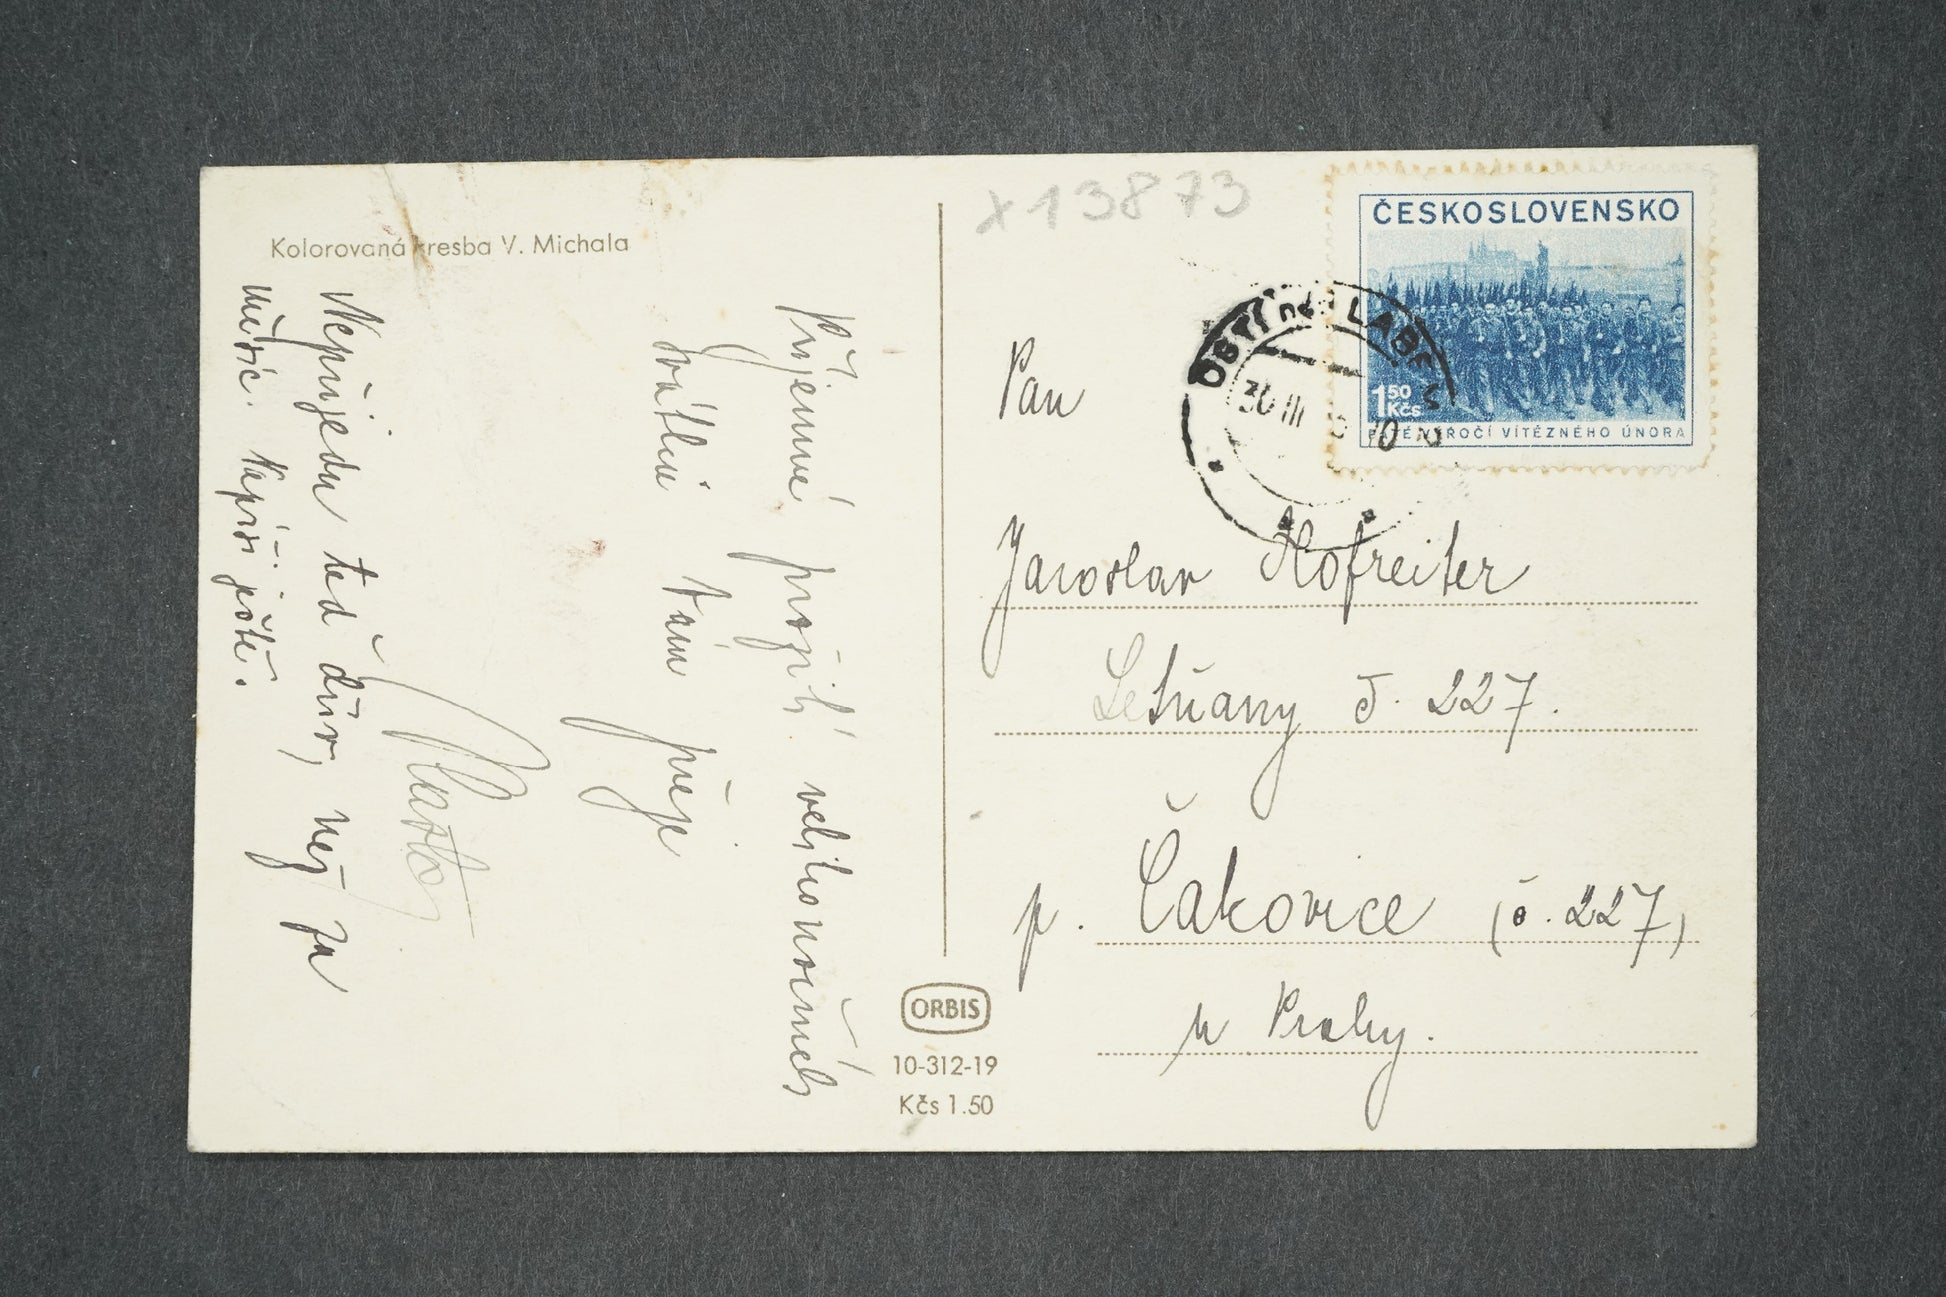 Kolorovaná kresba V. Michala
Příjemné prožití velikonočních
svátků Vám přeje
Vlasta
Nepřijedu teď dřív, než za
měsíc. Napíši ještě.
x13873
ČESKOSLOVENSKO
1 50 Kčs
PÁTÉ VÝROČÍ VÍTĚZNÉHO ÚNORA
ÚSTÍ nad LABEM
30 III
Pan
Jaroslav Hofreiter
Letňany č. 227.
p. Čakovice (č. 227)
u Prahy.
ORBIS
10-312-19
Kčs 1.50